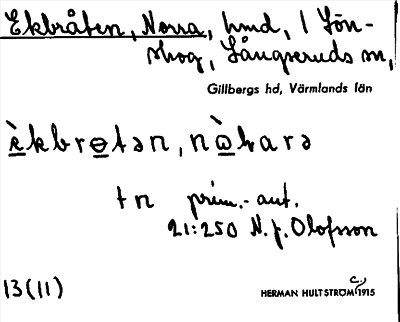 Ekbråten, Norra, hmd, 1 Lön-
skog, Långseruds sn,
Gillbergs hd, Värmlands län
È̱kbrꝋtən, nꞷ̀ƙarə
tn prim.-aut.
21:250 N. J. Olofsson
13(11)
HERMAN HULTSTRÖM c., 1915